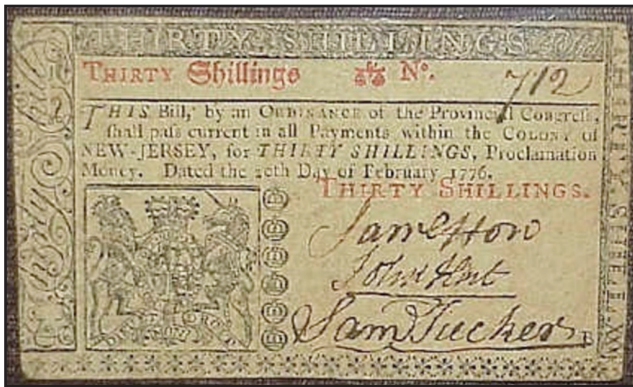 THIRTY SHILLINGS
THIRTY Shillings No. 712
THIS Bill, by an ORDINANCE of the Provincial Congress,
shall pass current in all Payments within the COLONY of
NEW-JERSEY, for THIRTY SHILLINGS, Proclamation
Money. Dated the 20th Day of February 1776.
THIRTY SHILLINGS.
Sam Tucker